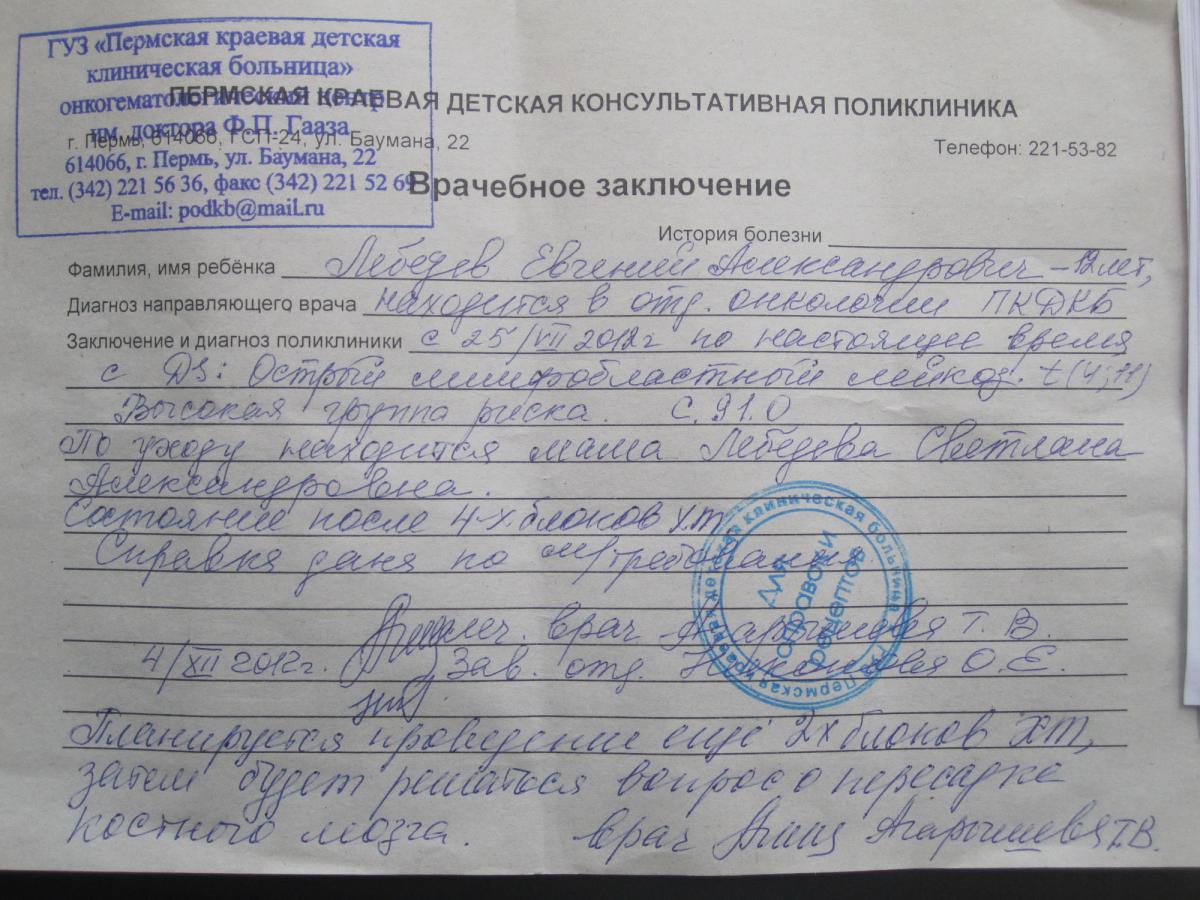 ГУЗ «Пермская краевая детская
клиническая больница»
онкогематологический центр
им. доктора Ф.П. Гааза
614066, г. Пермь, ул. Баумана, 22
тел. (342) 221 56 36, факс (342) 221 52 69
E-mail: podkb@mail.ru
ПЕРМСКАЯ КРАЕВАЯ ДЕТСКАЯ КОНСУЛЬТАТИВНАЯ ПОЛИКЛИНИКА
г. Пермь, 614066, ГСП-24, ул. Баумана, 22
Телефон: 221-53-82
Врачебное заключение
История болезни
Фамилия, имя ребёнка Лебедев Евгений Александрович - 12 лет,
Диагноз направляющего врача находится в отд. онкологии ПКДКБ
Заключение и диагноз поликлиники с 25/VII 2012г по настоящее время
с DS: Острый лимфобластный лейкоз. t(4;11)
Высокая группа риска. С.91.0
По уходу находится мама Лебедева Светлана
Александровна.
Состояние после 4-х блоков ХТ
Справка дана по м/требования
леч. врач Агарышева Т. В.
4/XII 2012г. Зав. отд. О.Е.
Планируется проведение ещё 2х блоков ХТ,
затем будет решаться вопрос о пересадке
костного мозга. врач Агарышева Т.В.
Пермская краевая детская клиническая больница
Для
справок и
рецептов